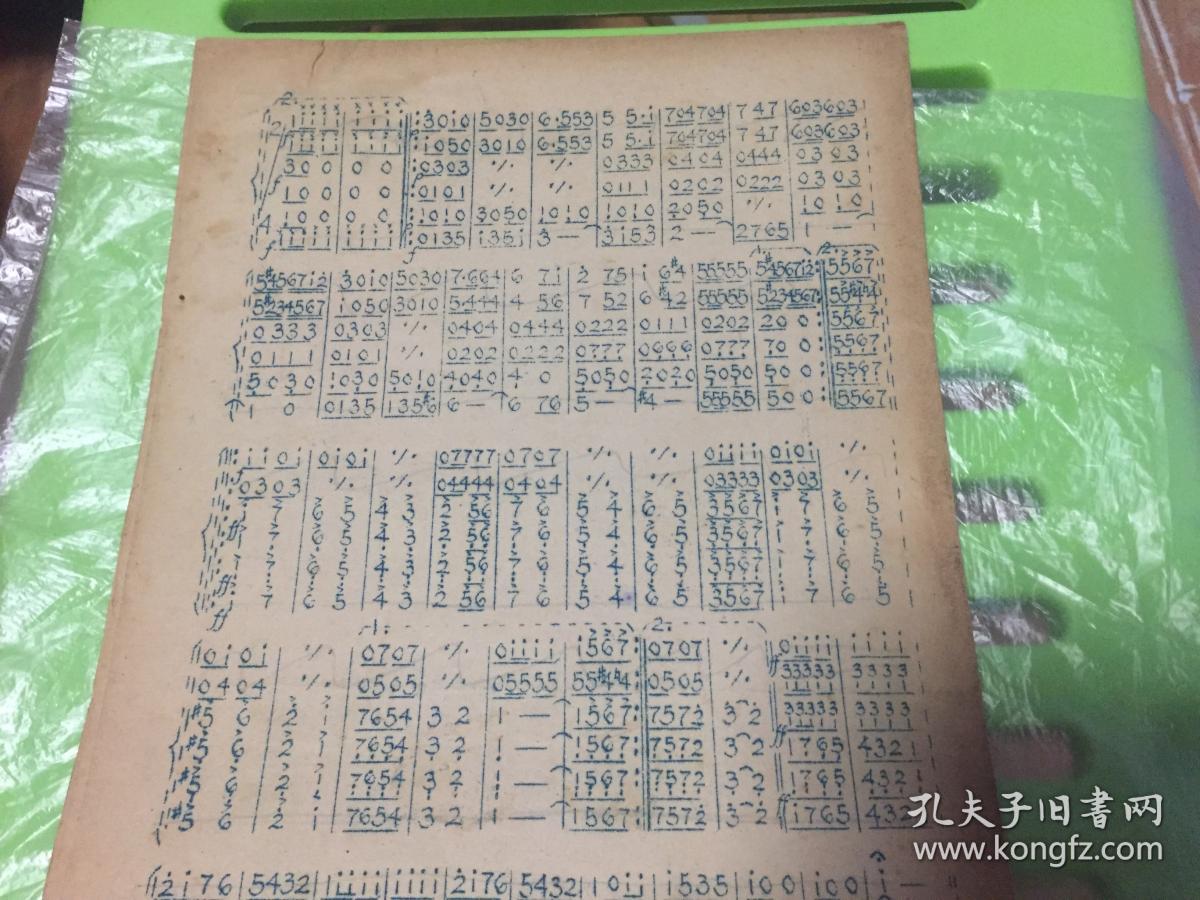 3010 5030 6·553 5 5·i 704704 7 47 603603
i050 3010 6·553 5 5·i 704704 7 47 603603
3 0 0 0 0 0303 ٪ ٪ 0333 0404 0444 03 03
1 0 0 0 0 0101 ٪ ٪ 0111 0202 0222 03 03
1 0 0 0 0 1010 3050 1010 1010 2050 ٪ 10 10
0135 i35i 3 — 3i53 2 — 2765 1 —
5#4567i2 30i0 5030 7·664 6 7i 2 75 i 6#4 55555 5#4567i2 5567
5#234567 i050 3010 5·444 4 56 7 52 6 #42 55555 5#234567 55#44
0333 0303 ٪ 0404 0444 0222 0111 0202 20 0 5567
0111 0101 ٪ 0202 0222 0777 0666 0777 70 0 5567
5030 1030 5010 4040 4 0 5050 2020 5050 50 0 5567
1 0 0135 135#6 6 — 6 76 5 — #4 — 55555 50 0 5567
i i 0 i 0i0i ٪ 07777 0707 ٪ ٪ 0iiii 0i0i ٪
0303 ٪ ٪ 04444 0404 ٪ ٪ 03333 0303 ٪
7 6 5 4 3 2 56 7 6 5 4 6 5 3567 i 7 6 5
7 6 5 4 3 2 56 7 6 5 4 6 5 3567 1 7 6 5
7 6 5 4 3 2 56 7 6 5 4 6 5 3567 i 7 6 5
7 6 5 4 3 2 56 7 6 5 4 6 5 3567 i 7 6 5
1. 2.
0i0i ٪ 0707 ٪ 0iiii i567 0707 ٪ 0iiii i i i i
0404 ٪ 0505 ٪ 05555 55#44 0505 ٪ 33333 3333
#5 6 2 i 7654 3 2 1 — 1567 7572 3 2 33333 3333
#5 6 2 i 7654 3 2 1 — 1567 7572 3 2 1765 432i
#5 6 2 i 7654 3 2 1 — 1567 7572 3 2 1765 432
#5 6 2 i 7654 3 2 1 — 1567 7572 3 2 1765 432
i2i76 5432 iiii iiii 2i76 5432 i0ii i535 i00 i00 i —
孔夫子旧書网
www.kongfz.com